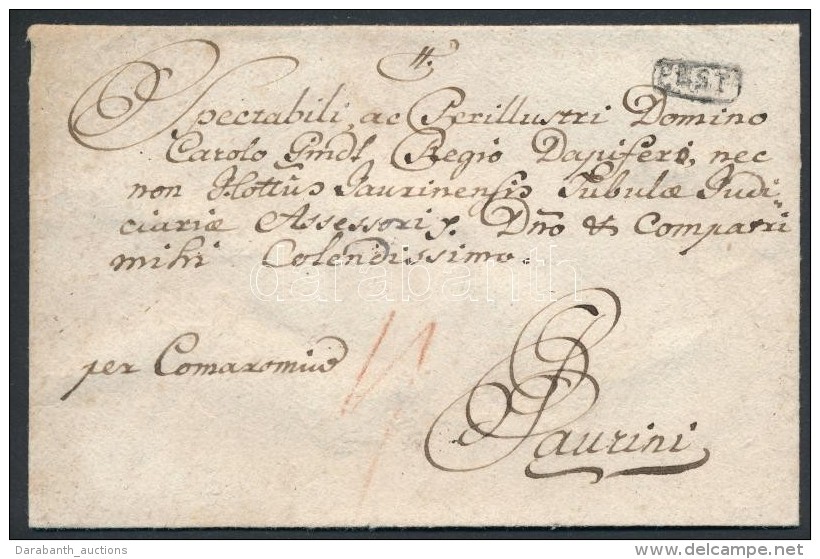 PEST
Spectabili, ac Perillustri Domino
Carolo Regio Dapifero, nec
non Jaurinensis Tabulæ Judi-
ciariæ Assessori, Dno & Compatri
mihi Colendissimo.
darabanth
per Comaromiu
Jaurini
Darabanth_auctions
delcampe.net